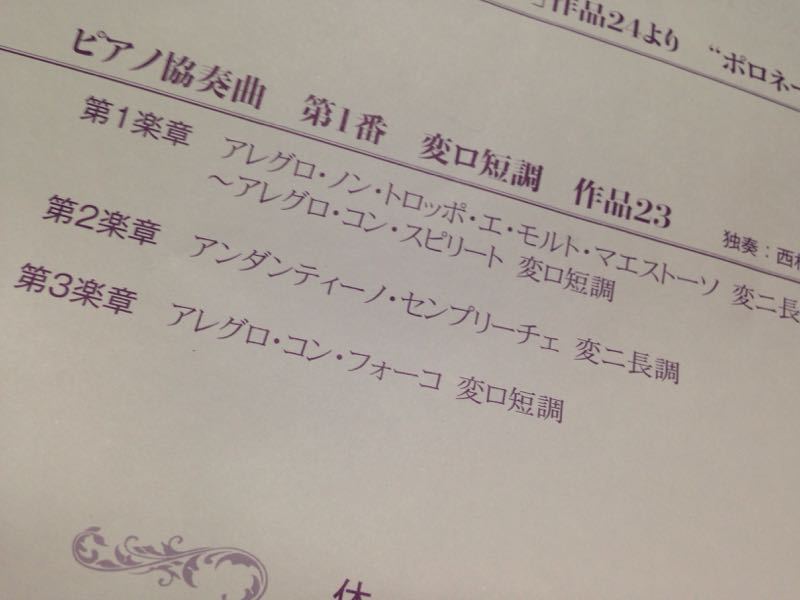 」作品24より “ポロネー
ピアノ協奏曲 第1番 変ロ短調 作品23
独奏：西
第1楽章 アレグロ・ノン・トロッポ・エ・モルト・マエストーソ 変ニ長
～アレグロ・コン・スピリート 変ロ短調
第2楽章 アンダンティーノ・センプリーチェ 変ニ長調
第3楽章 アレグロ・コン・フォーコ 変ロ短調
休